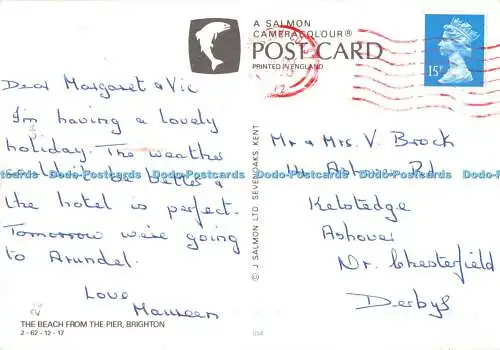 A SALMON
CAMERACOLOUR®
POST CARD
PRINTED IN ENGLAND
15P
Dear Margaret & Vic
I'm having a lovely
holiday. The weather
couldn't be better &
the hotel is perfect.
Tomorrow we're going
to Arundel.
Love
Maureen
THE BEACH FROM THE PIER, BRIGHTON
2-62-12-17
© J SALMON LTD SEVENOAKS KENT
Mr & Mrs. V. Brock
Ashover Rd
Kelstedge
Ashover
Nr. Chesterfield
Derbys
Dodo-Postcards Dodo-Postcards Dodo-Postcards
Dodo-Postcards Dodo-Postcards Dodo-Postcards